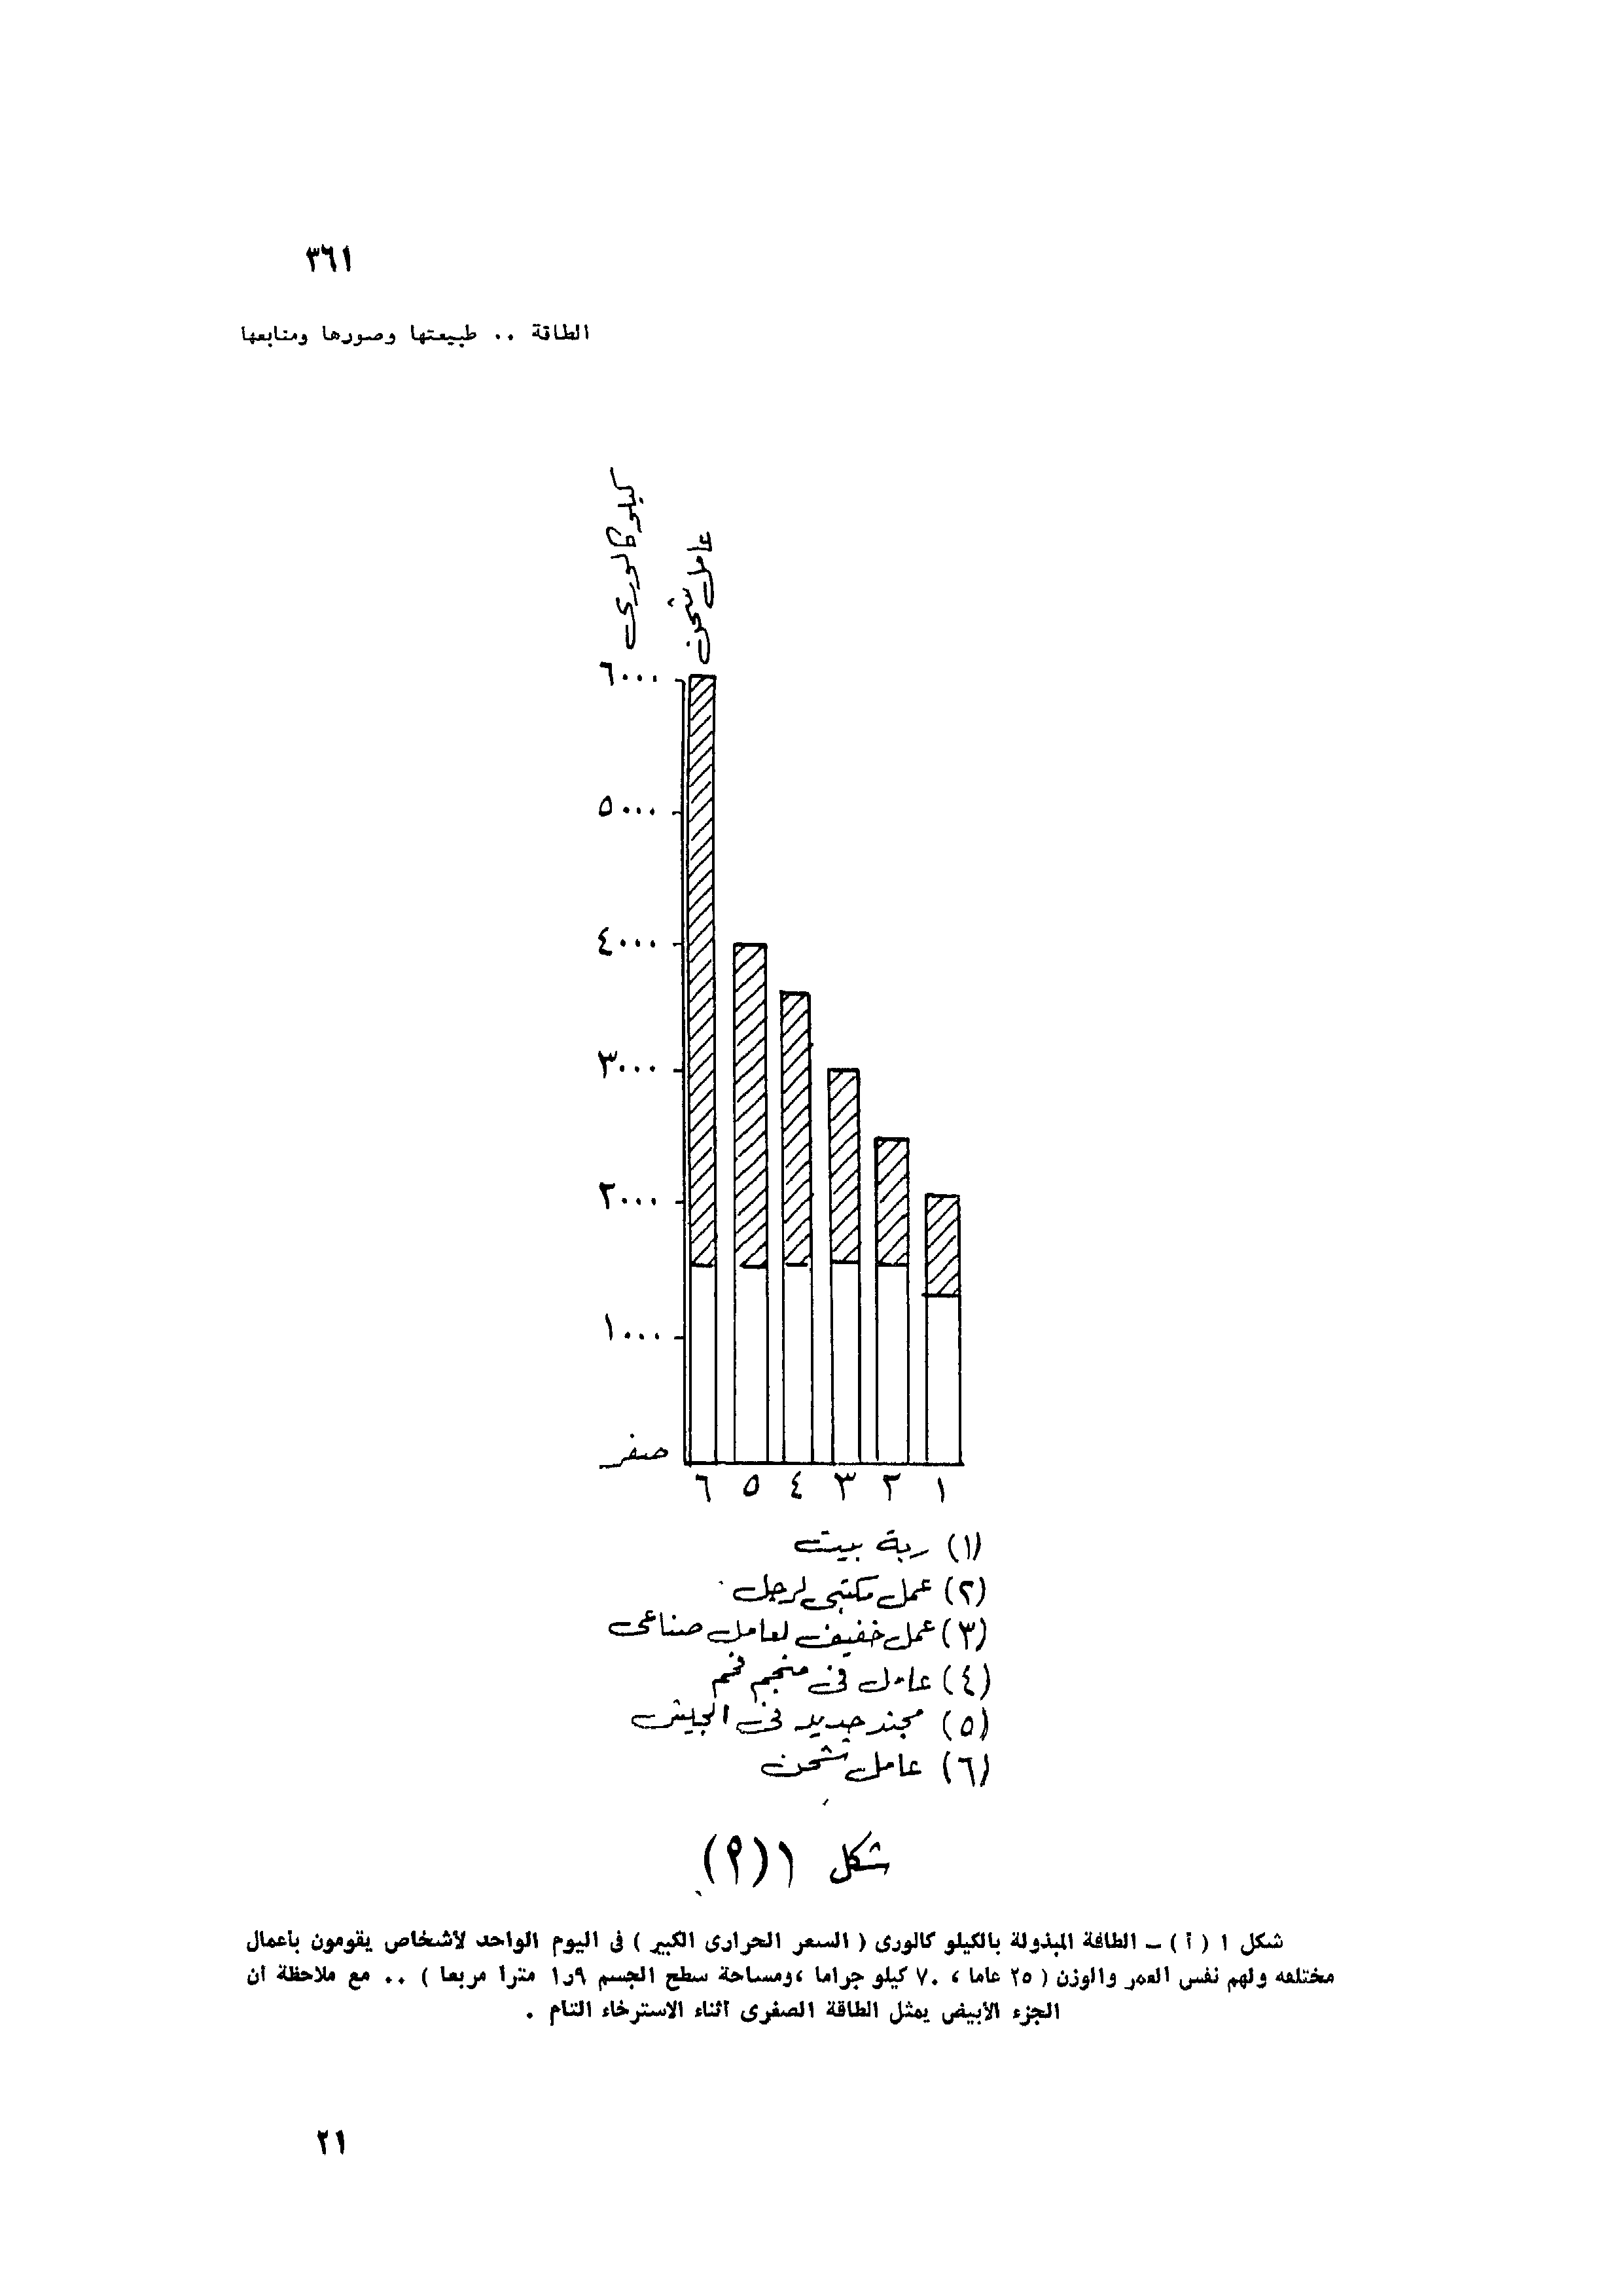 ٣٦١
الطاقة .. طبيعتها وصورها ومنابعها
كيلو كالورى
عامل شحن
٦٠٠٠
٥٠٠٠
٤٠٠٠
٣٠٠٠
٢٠٠٠
١٠٠٠
صفر
٦ ٥ ٤ ٣ ٢ ١
(١) ربة بيت
(٢) عمل مكتبى لرجل
(٣) عمل خفيف لعامل صناعى
(٤) عامل فى منجم فحم
(٥) مجند جديد فى الجيش
(٦) عامل شحن
شكل ١ (٩)
شكل ١ ( أ ) – الطاقة المبذولة بالكيلو كالورى ( السعر الحرارى الكبير ) فى اليوم الواحد لأشخاص يقومون بأعمال
مختلفه ولهم نفس العمر والوزن ( ٢٥ عاما ، ٧٠ كيلو جراما ، ومساحة سطح الجسم ٩ر١ مترا مربعا ) .. مع ملاحظة ان
الجزء الأبيض يمثل الطاقة الصغرى أثناء الاسترخاء التام .
٢١